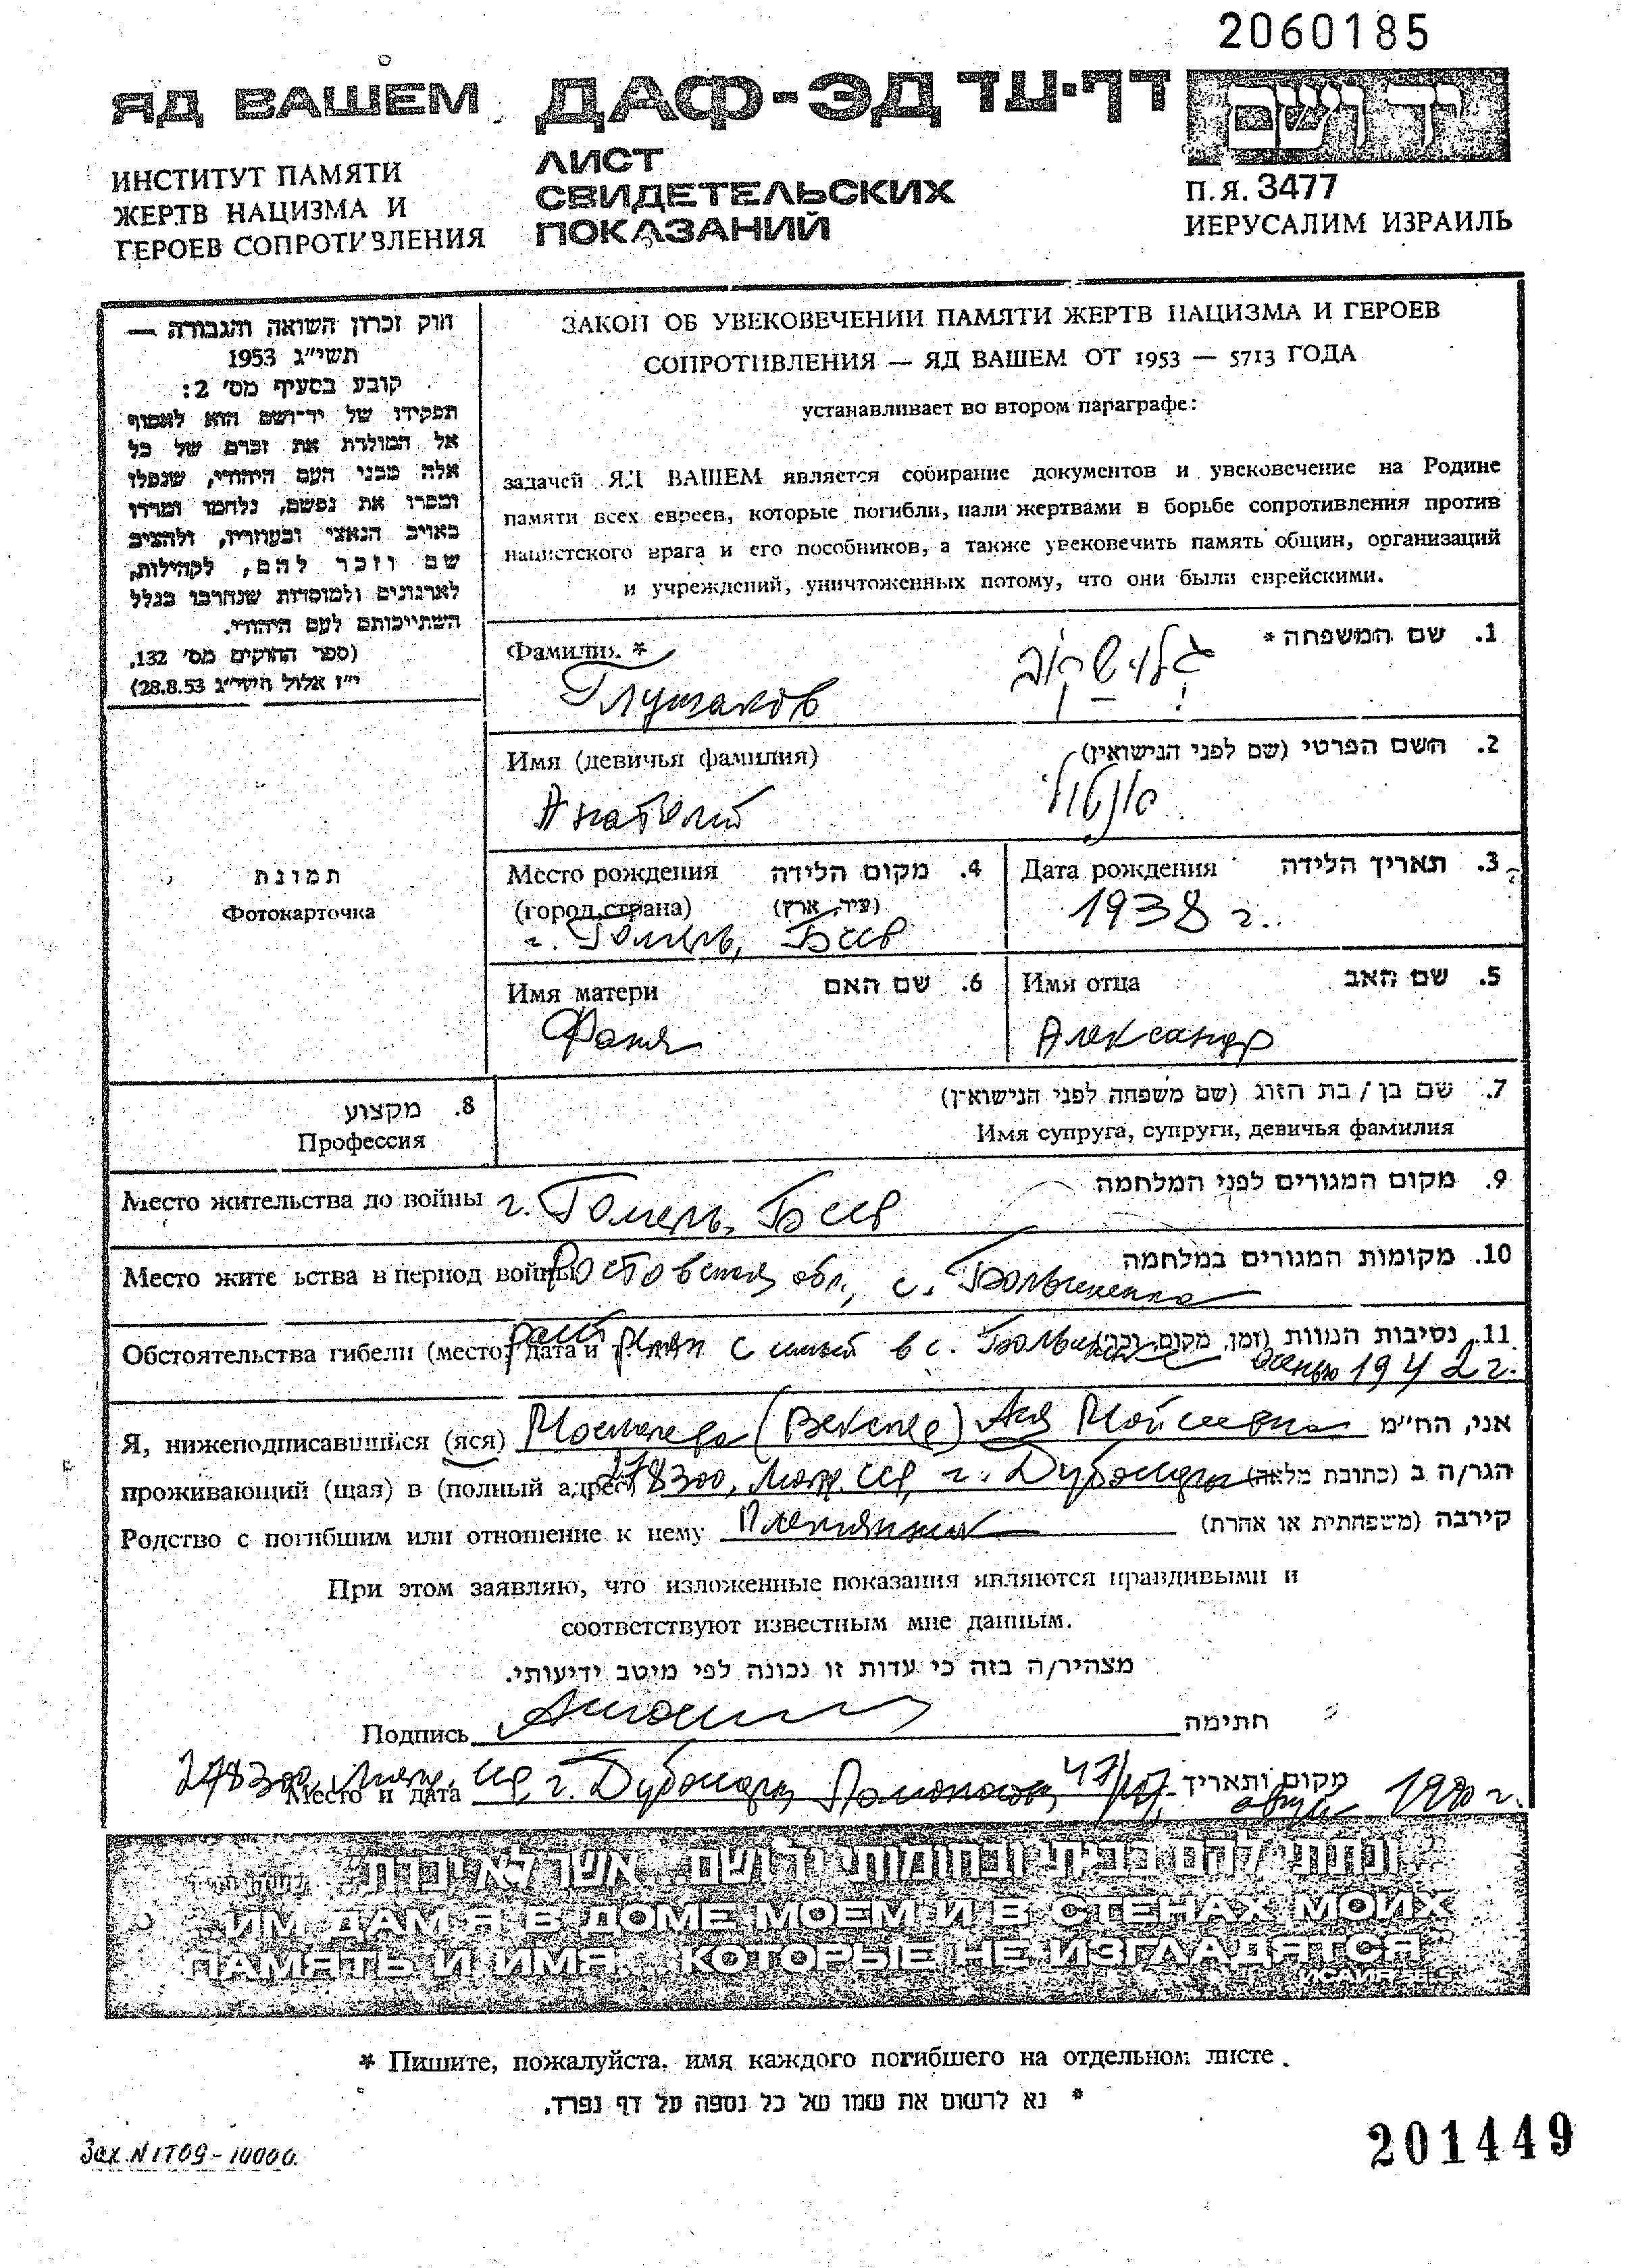 2060185
ЯД ВАШЕМ ДАФ-ЭД דף-עד יד ושם
ИНСТИТУТ ПАМЯТИ
ЖЕРТВ НАЦИЗМА И
ГЕРОЕВ СОПРОТИВЛЕНИЯ
ЛИСТ
СВИДЕТЕЛЬСКИХ
ПОКАЗАНИЙ
П.Я. 3477
ИЕРУСАЛИМ ИЗРАИЛЬ
חוק זכרון השואה והגבורה —
תשי״ג 1953
קובע בסעיף מס׳ 2:
תפקידו של יד-ושם הוא לאסוף
אל המולדת את זכרם של כל
אלה מבני העם היהודי, שנפלו
ומסרו את נפשם, נלחמו ומרדו
באויב הנאצי ובעוזריו, ולהציב
שם וזכר להם, לקהילות,
לארגונים ולמוסדות שנחרבו בגלל
השתייכותם לעם היהודי.
(ספר החוקים מס׳ 132,
י״ז אלול תשי״ג 28.8.53)
ЗАКОН ОБ УВЕКОВЕЧЕНИИ ПАМЯТИ ЖЕРТВ НАЦИЗМА И ГЕРОЕВ
СОПРОТИВЛЕНИЯ — ЯД ВАШЕМ ОТ 1953 — 5713 ГОДА
устанавливает во втором параграфе:
задачей ЯД ВАШЕМ является собирание документов и увековечение на Родине
памяти всех евреев, которые погибли, пали жертвами в борьбе сопротивления против
нацистского врага и его пособников, а также увековечить память общин, организаций
и учреждений, уничтоженных потому, что они были еврейскими.
Фамилия * 1. שם המשפחה *
Глушаков גלושקוב
Имя (девичья фамилия) 2. השם הפרטי (שם לפני הנישואין)
Анатолий
Место рождения 4. מקום הלידה
(город, страна) (עיר, ארץ)
г. Гомель, БССР
Дата рождения 3. תאריך הלידה
1938 г.
תמונת
Фотокарточка
Имя матери 6. שם האם
Фаня
Имя отца 5. שם האב
Александр
8. מקצוע
Профессия
7. שם בן / בת הזוג (שם משפחה לפני הנישואין)
Имя супруга, супруги, девичья фамилия
Место жительства до войны г. Гомель, БССР 9. מקום המגורים לפני המלחמה
Место жите ьства в период войны Ростовская обл., с. 10. מקומות המגורים במלחמה
Обстоятельства гибели (место, дата и т. с семьей в с. осенью 1942 г. 11. נסיבות המוות (זמן, מקום, וכו׳)
Я, нижеподписавшийся (яся) Ася Мойсеевна אני, הח״מ
проживающий (щая) в (полный адрес) 278300, Молд. ССР, г. Дубоссары הגר/ה ב (כתובת מלאה)
Родство с погибшим или отношение к нему קירבה (משפחתית או אחרת)
При этом заявляю, что изложенные показания являются правдивыми и
соответствуют известным мне данным.
מצהיר/ה בזה כי עדות זו נכונה לפי מיטב ידיעותי.
Подпись חתימה
278300, Молд. ССР г. Дубоссары, август 1990 г.
Место и дата מקום ותאריך
ונתתי להם בביתי ובחומותי יד ושם... אשר לא יכרת
ИМ ДАМ Я В ДОМЕ МОЕМ И В СТЕНАХ МОИХ
ПАМЯТЬ И ИМЯ... КОТОРЫЕ НЕ ИЗГЛАДЯТСЯ
ИСАЙЯ 56, 5
* Пишите, пожалуйста, имя каждого погибшего на отдельном листе.
* נא לרשום את שמו של כל נספה על דף נפרד.
Зак. N 1709-10000.
201449